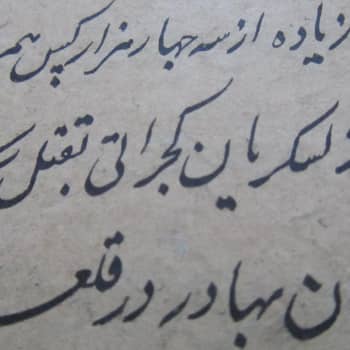 زیاده از سه چهار هزار کس هم
لسکریان کجراتی بقتل
بهادر در قلعه